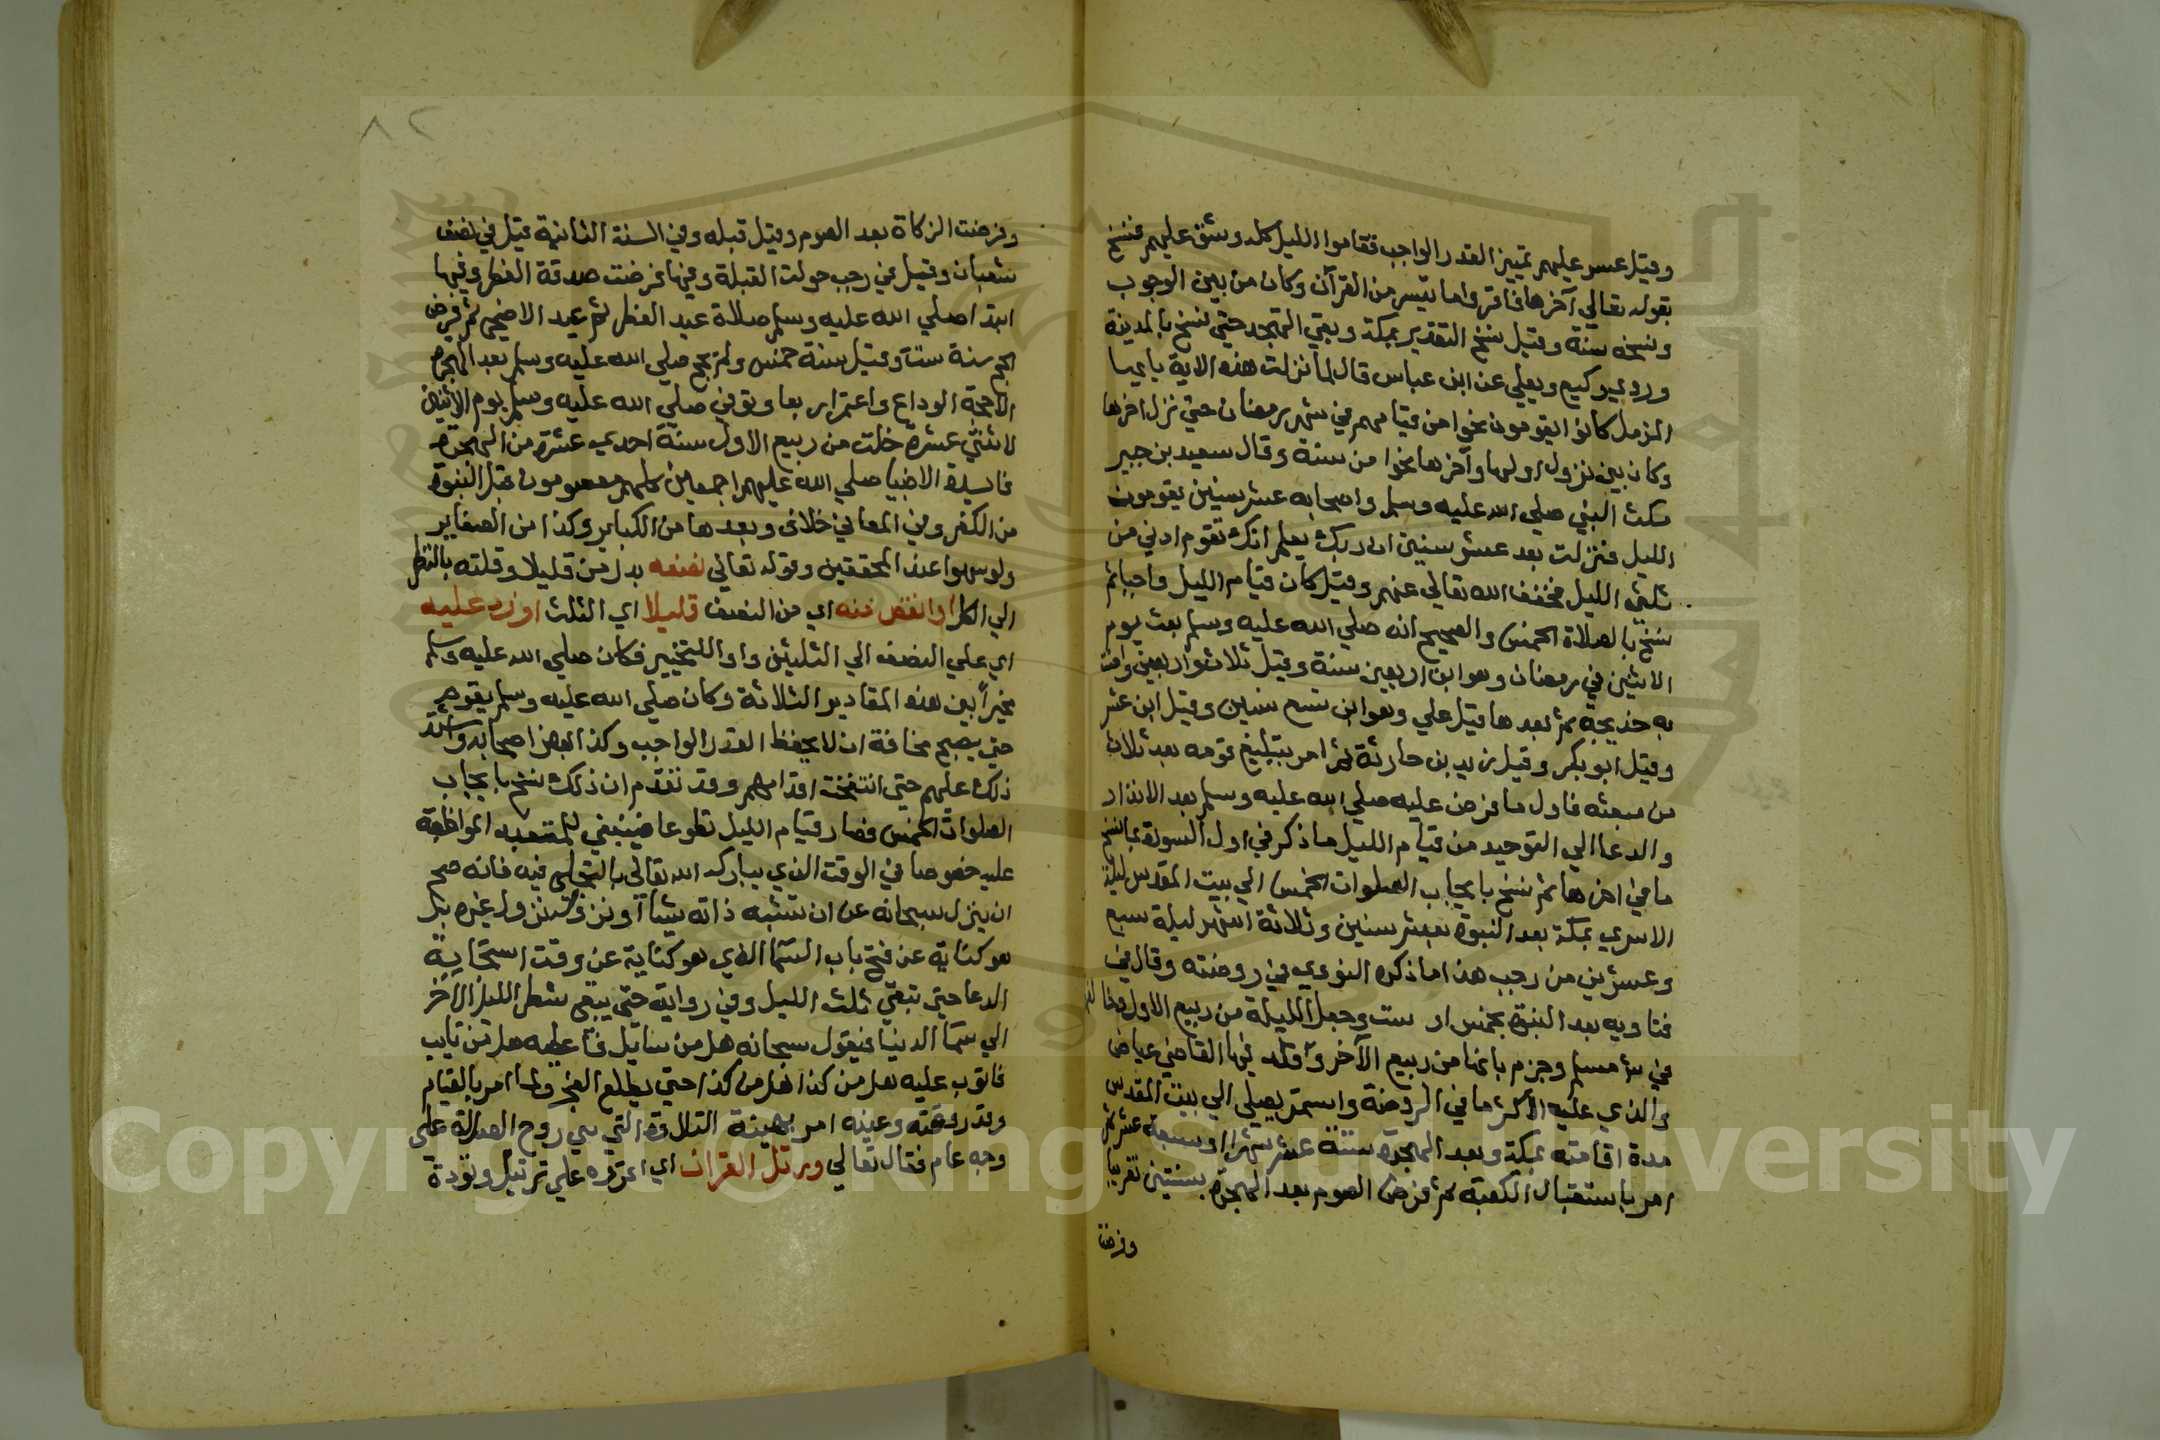 وقيل عسر عليهم تمييز القدر الواجب فقاموا الليل كله وشق عليهم فنسخ
بقوله تعالى آخرها فاقرؤاما تيسر من القرآن وكان من بين الوجوب
ونسخه سنة وقيل نسخ التقدير بمكة وبقي التهجد حتى نسخ بالمدينة
وروي وكيع ويعلي عن ابن عباس قال لما نزلت هذه الاية يا ايها
المزمل كانوا يقومون نحوا من قيامهم في شهر رمضان حتى نزل اخرها
وكان بين نزول اولها وآخرها نحوا من سنة وقال سعيد بن جبير
مكث النبي صلي الله عليه وسلم واصحابه عشر سنين يقومون
الليل فنزلت بعد عشر سنين ان ربك يعلم انك تقوم ادني من
ثلثي الليل فخفف الله تعالي عنهم وقيل كان قيام الليل واجبا ثم
نسخ بالصلاة الخمس والصحيح انه صلي الله عليه وسلم بعث يوم
الاثنين في رمضان وهو ابن اربعين سنة وقيل ثلاث واربعين وامنت
به خديجة ثم بعدها قيل علي وهو ابن تسع سنين وقيل ابن عشر
وقيل ابو بكر وقيل زيد بن حارثة ثم امر بتبليغ قومه بعد ثلاث
من مبعثه فاول ما فرض عليه صلي الله عليه وسلم بعد الانذار
والدعا الي التوحيد من قيام الليل ما ذكر في اول السورة ثم نسخ
ما في اخرها ثم نسخ بايجاب الصلوات الخمس الي بيت المقدس ليلة
الاسري بمكة بعد النبوة بعشر سنين وثلاثة اشهر ليلة سبع
وعشرين من رجب هذا ما ذكره النووي في روضته وقال في
فتاويه بعد النبوة بخمس او ست وجعل الليلة من ربيع الاول
في شرح مسلم وجزم بانها من ربيع الآخر وقلد فيها القاضي عياض
والذي عليه الاكثر ما في الروضة واستمر يصلي الي بيت المقدس
مدة اقامته بمكة وبعد الهجرة ستة عشر شهرا او سبعة عشر ثم
امر باستقبال الكعبة ثم فرض الصوم بعد الهجرة بسنتين تقريبا
وفرضت
٨٢
وفرضت الزكاة بعد الصوم وقيل قبله وفي السنة الثانية قيل في نصف
شعبان وقيل في رجب حولت القبلة وفيها فرضت صدقة الفطر وفيها
ابتدا صلي الله عليه وسلم صلاة عيد الفطر ثم عيد الاضحى ثم فرض
الحج سنة ست وقيل سنة خمس ولم يحج صلي الله عليه وسلم بعد الهجرة
الا حجة الوداع واعتمر اربعا وتوفي صلي الله عليه وسلم يوم الاثنين
لاثنتي عشرة خلت من ربيع الاول سنة احدي عشرة من الهجرة
فايدة الانبيا صلي الله عليهم اجمعين كلهم معصومون قبل النبوة
من الكفر وفي المعاصي خلاف وبعدها من الكباير وكذا من الصغاير
ولو سهوا عند المحققين وقوله تعالي نصفه بدل من قليلا وقلته بالنظر
الي الكل او انقص منه اي من النصف قليلا اي الثلث او زد عليه
اي علي النصف الي الثلثين واو للتخيير فكان صلي الله عليه وسلم
مخيرا بين هذه المقادير الثلاثة وكان صلي الله عليه وسلم يقوم
حتى يصبح مخافة ان لا يحفظ القدر الواجب وكذا بعض اصحابه واشتد
ذلك عليهم حتى انتفخت اقدامهم وقد تقدم ان ذلك نسخ بايجاب
الصلوات الخمس فصار قيام الليل تطوعا فينبغي للمتعبد المواظبة
عليه خصوصا في الوقت الذي يباركه الله تعالى بالتجلي فيه فانه صح
ان ينزل سبحانه عن ان تشبه ذاته شيأ او نزوله نزول غيره بل
هو كناية عن فتح باب السما الذي هو كناية عن وقت استجابة
الدعا حتى تبقي ثلث الليل وفي رواية حتى يبقى شطر الليل الآخر
الي سما الدنيا فيقول سبحانه هل من سايل فاعطيه هل من تايب
فاتوب عليه هل من كذا هل من كذا حتى يطلع الفجر ولما امر بالقيام
وقدر وقته وعينه امر بهيئة التلاوة التي هي روح الصلاة علي
وجه عام فقال تعالي ورتل القران اي اقرءه علي ترتيل وتؤدة
Copyright © King Saud University